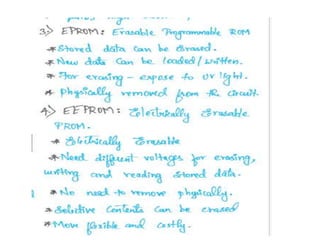 3.) EPROM: Erasable Programmable ROM
* Stored data can be erased.
* New data can be loaded/written.
* For erasing - expose to UV light.
* Physically removed from the circuit
4.) EEPROM: Electrically Erasable
PROM.
* Electrically Erasable
* Need different voltages for erasing,
writing and reading stored data.
* No need to remove physically.
* Selective Contents can be erased
* More flexible and costly.